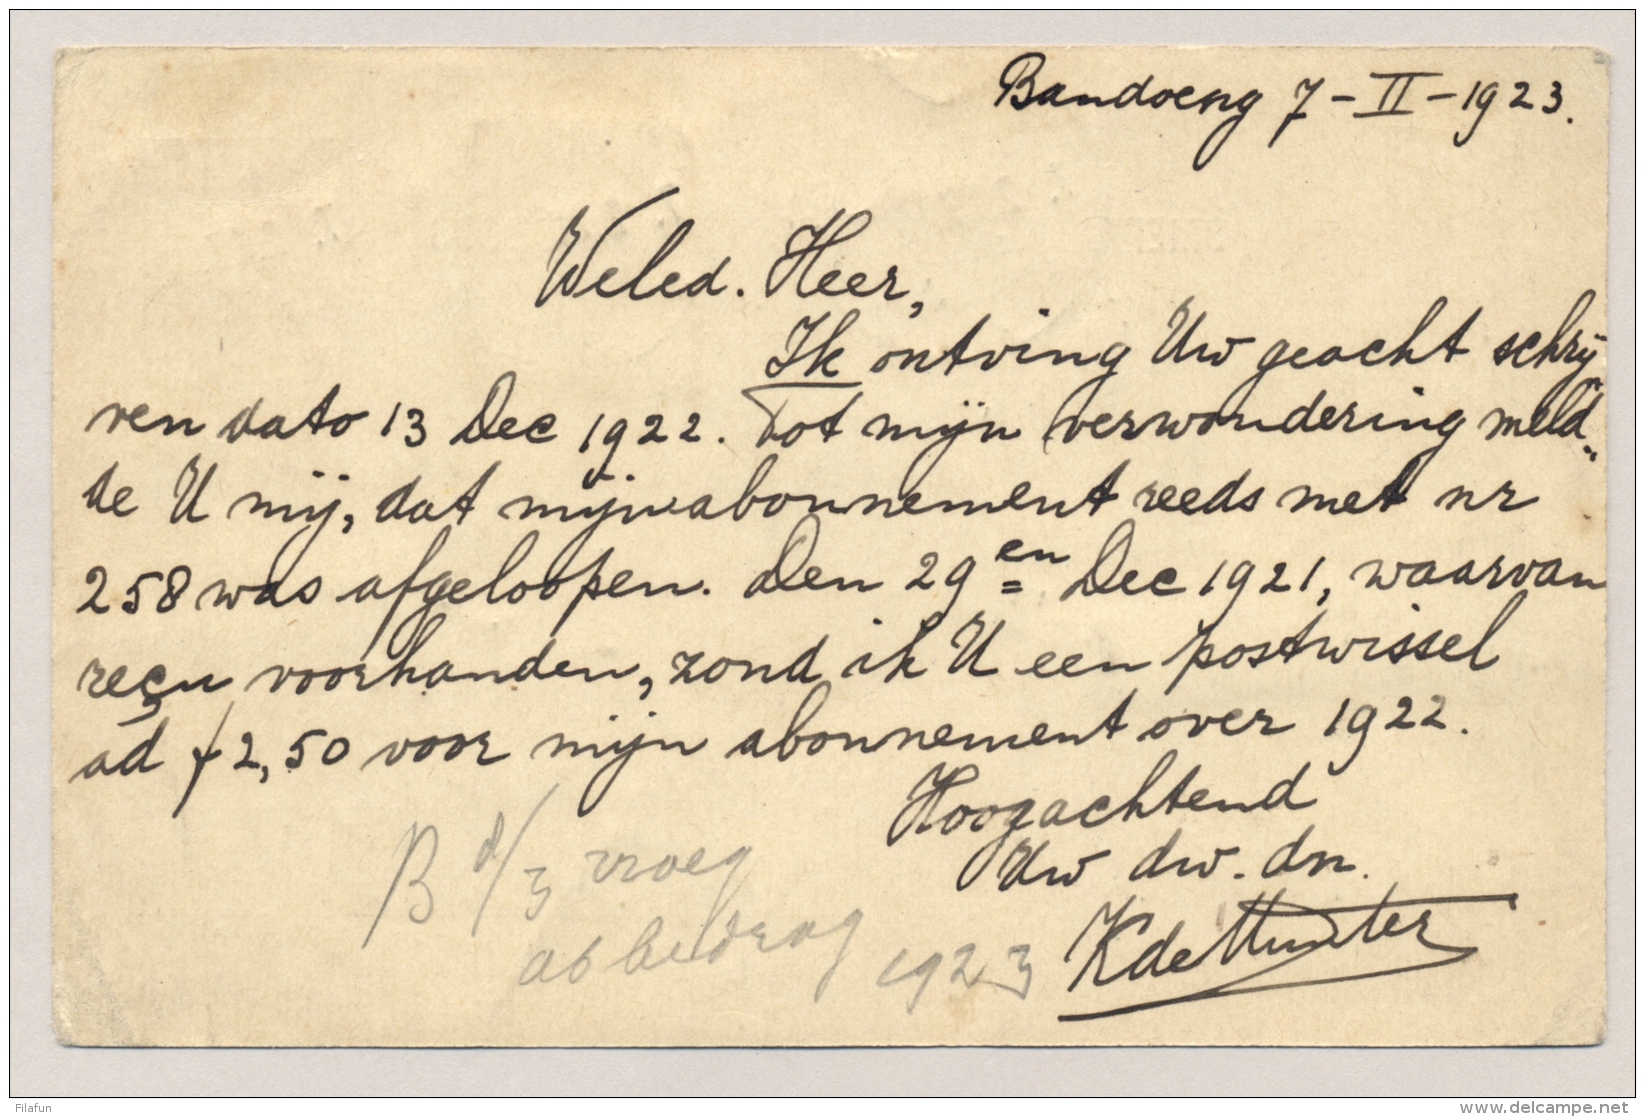 Bandoeng 7-II-1923.
Weled. Heer,
Ik ontving Uw geacht schrij
ven dato 13 Dec 1922. Tot mijn verwondering meld„
de U mij, dat mijn abonnement reeds met nr
258 was afgeloopen. Den 29en Dec 1921, waarvan
reçu voorhanden, zond ik U een postwissel
ad f 2,50 voor mijn abonnement over 1922.
Hoogachtend
Uw dw. dn.
K de Munter
B d/3 vroeg
ab bedrag 1923
Filafun
delcampe.net